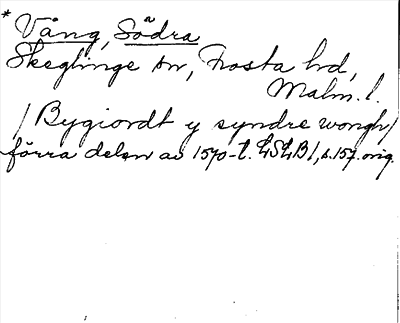 * Vång, Södra
Skeglinge sn, Frosta hd,
Malm. l.
/Bygiordt y syndre wongh/
förra delen av 1570-t. LSLB1, s. 157. orig.